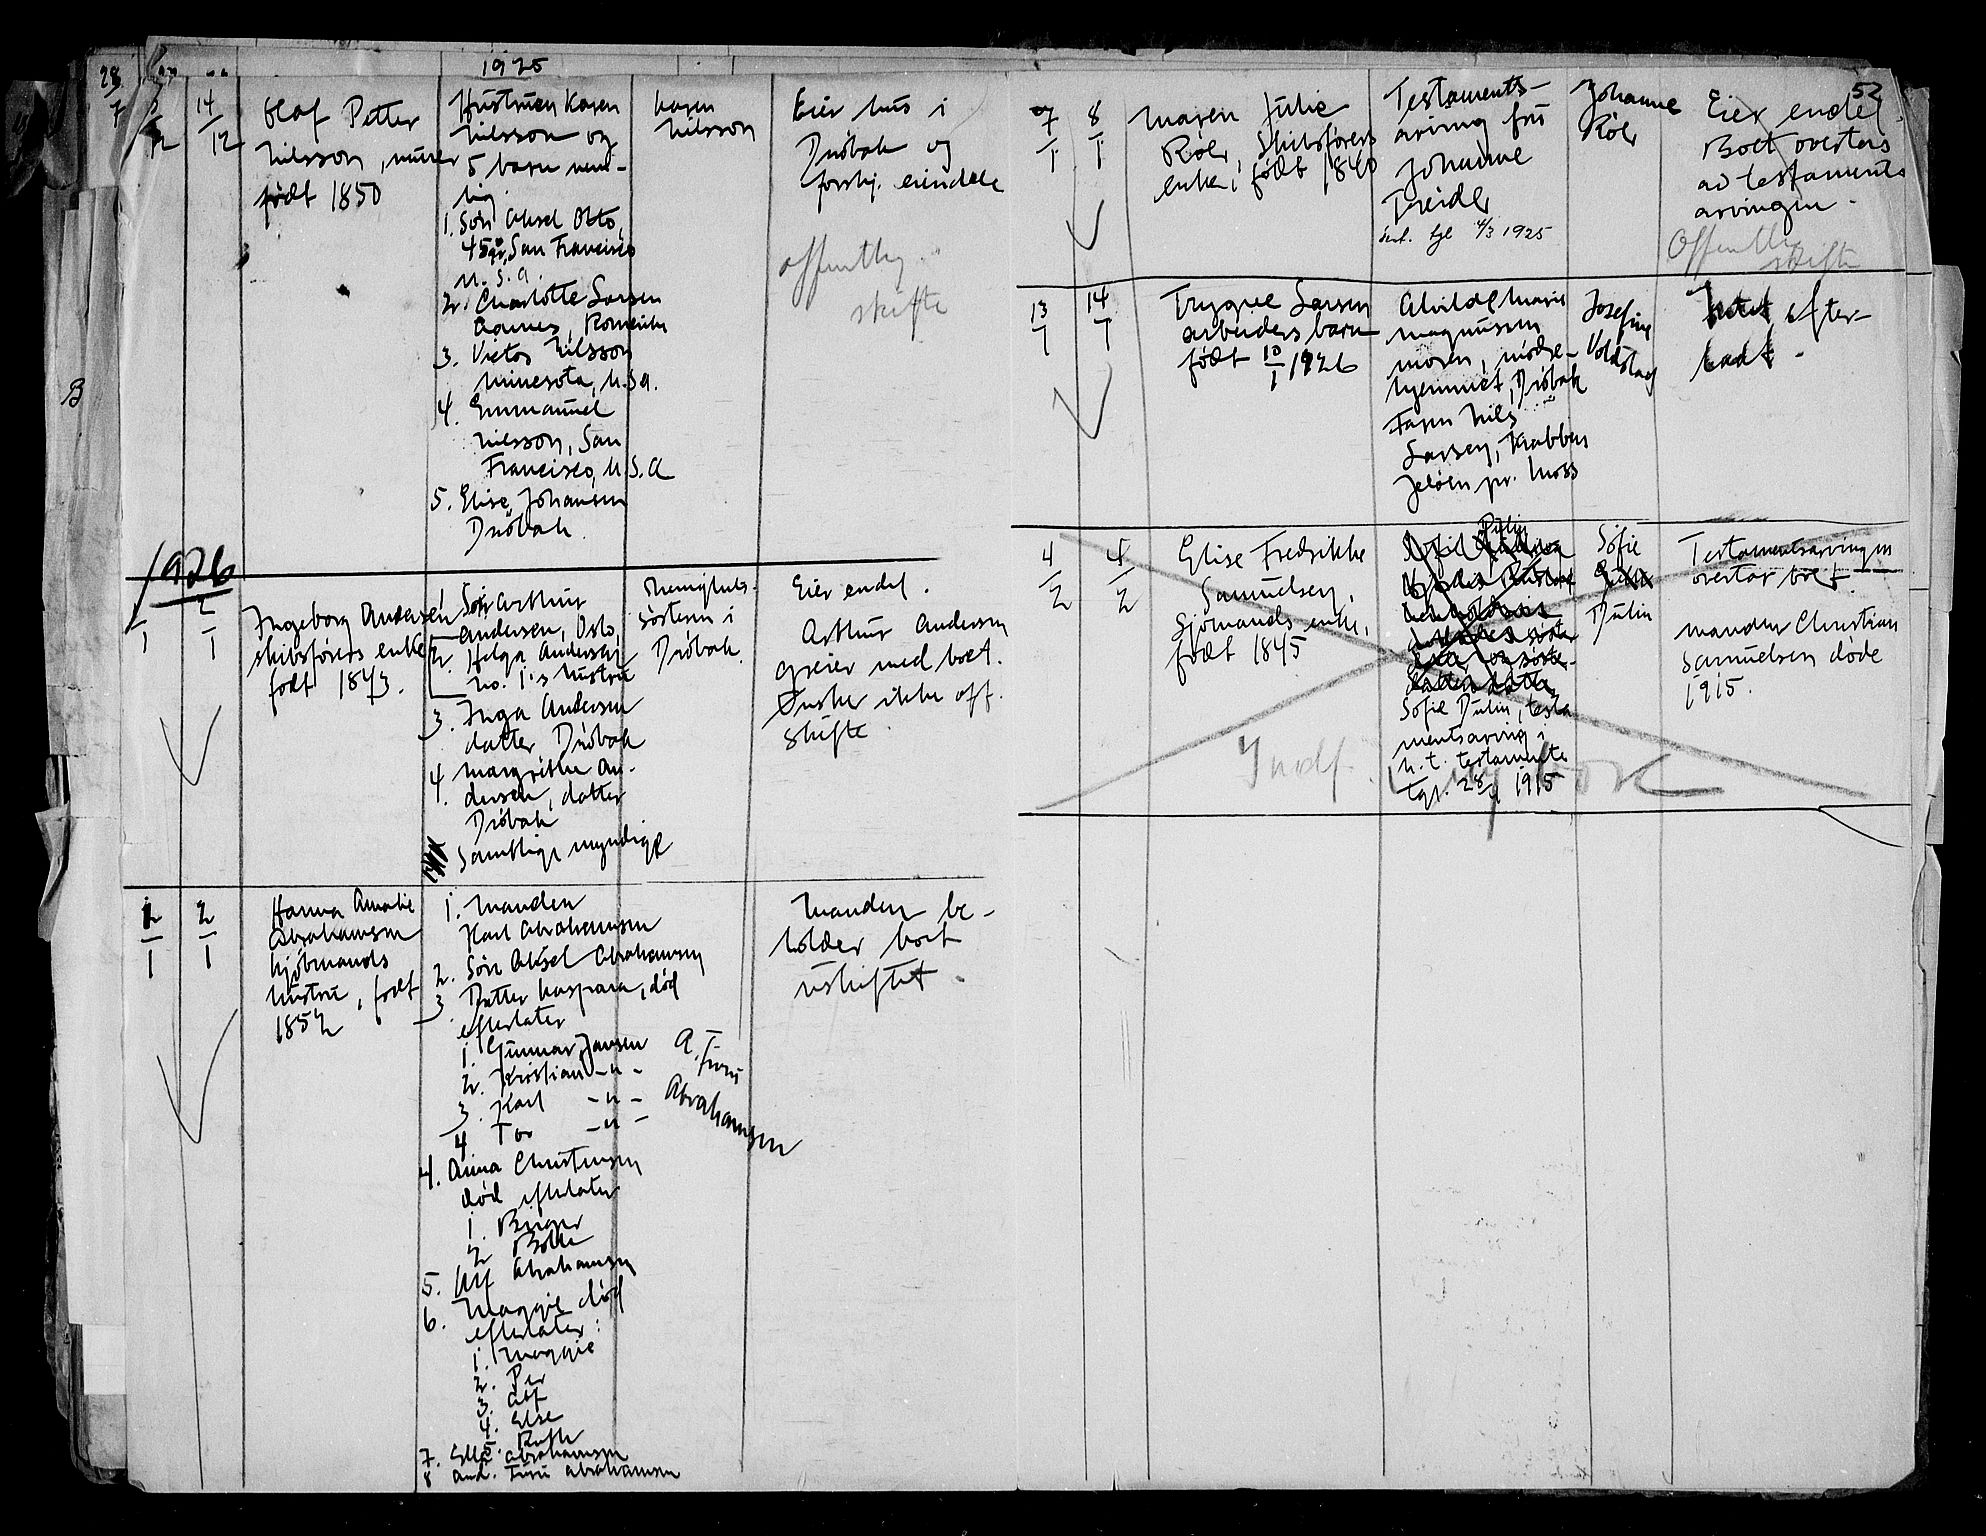 1925
14/12
Olaf Petter
Nilsson, murer
født 1850
Hustruen Karen
Nilsson og
5 barn nem-
lig
1. Søn Aksel Otto,
45 år, San Francisco
U.S.A
2. Charlotte Larsen
3. Victor Nilsson
Minesota, U.S.A.
4. Emmanuel
Nilsson, San
Francisco, U.S.A
5. Elise Johansen
Drøbak.
Karen
Nilsson
Eier hus i
Drøbak og
forskj. eiendele
Offentlig
skifte
1926
2/1
Ingeborg Andersen
skibsførers enke
født 1843.
Søn Arthur
Andersen, Oslo,
2. Helga Andersen
No. 1's hustru
3. Inga Andersen
datter Drøbak
4. Margrethe An-
dersen, datter
Drøbak
Samtlige myndige
Menigheds-
søsteren i
Drøbak.
Eier endel.
Arthur Andersen
greier med boet.
Ønsker ikke off.
skifte
1/1
2/1
Hanna Amalie
Abrahamsen
kjøbmands
hustru, født
1852
1. Manden
Karl Abrahamsen
2. Søn Aksel Abrahamsen
3. Datter Kaspara, død
efterlater
1. Gunnar Jansen
2. Kristian -"-
3. Karl -"-
4 Tor -"-
4. Anna Christensen
død efterlater
1. Birger
2
5. Alf Abrahamsen
6. Maggie død
efterlater:
1. Maggie
2. Per
3. Alf
4. Else
5. Ruth
7. Ella Abrahamsen
8 And. Furu Abrahamsen
A. Furu
Abrahamsen
Manden be-
holder boet
uskiftet.
52
7/1
8/1
Maren Julie
Röer, Skibsførers
enke, født 1840
Testaments-
arving fru
Johanne
Treider
4/3 1925
Johanne
Röer
Eier endel.
Boet overtas
av testaments
arvingen.
Offentlig
skifte
13/1
14/1
Trygve Larsen
arbeiders barn
født 10/1 1926
Alvilde Marie
Magnussen
moren, mødre-
hjemmet, Drøbak
Faren Nils
Larsen, Krabben
Jeløen pr. Moss
Josefine
Voldstad
Intet efter-
ladt.
4/2
4/2
Elise Fredrikke
Samuelsen,
Sjömands enke,
født 1845
Dulin
Sofie Dulin, testa
mentsarving i
h.t. testamente
tgl. 28/ 1915
Sofie
Dulin
Testamentsarvingen
overtar boet
Manden Christian
Samuelsen døde
1915.
Indf. i ny bok